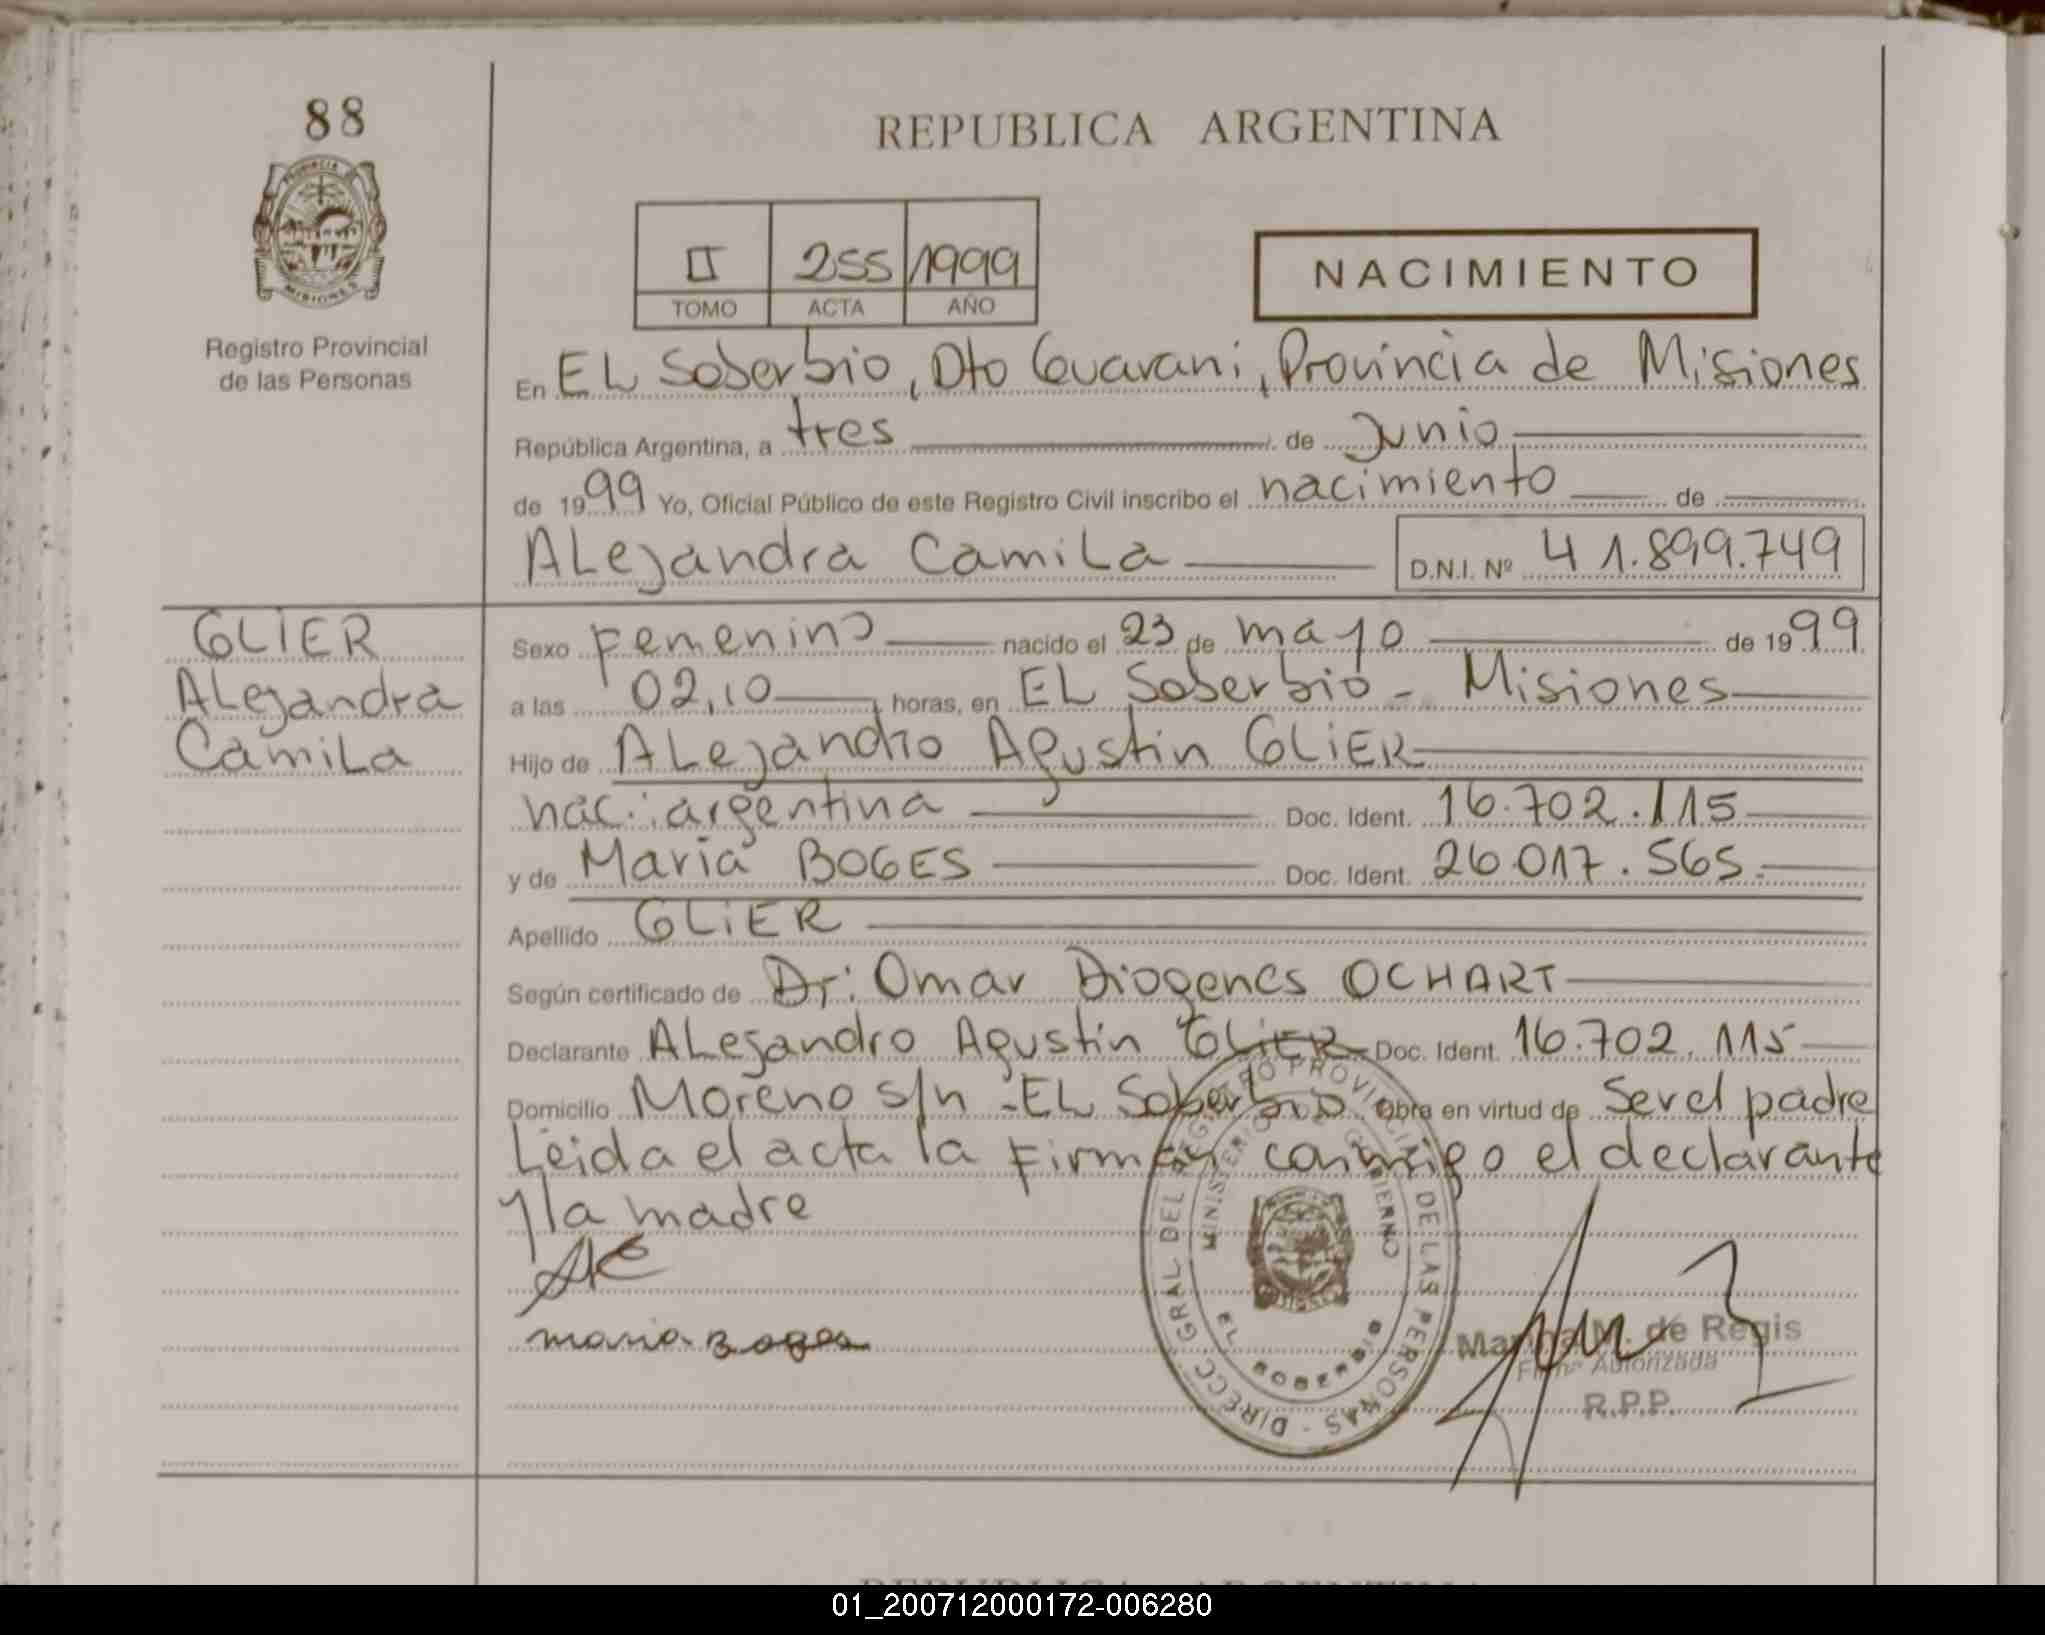 88
REPUBLICA ARGENTINA
PROVINCIA
MISIONES
Registro Provincial
de las Personas
II 255 1999
TOMO ACTA AÑO
NACIMIENTO
En EL Soberbio, Dto Guarani, Provincia de Misiones
República Argentina, a tres de Junio
de 1999 Yo, Oficial Público de este Registro Civil inscribo el nacimiento de
ALejandra CamiLa D.N.I. Nº 41.899.749
GLIER
ALejandra
CamiLa
Sexo Femenino nacido el 23 de mayo de 1999
a las 02,10 horas, en EL Soberbio - Misiones
Hijo de ALejandro Agustin GLIER
nac: argentina Doc. Ident. 16.702.115
y de Maria BOGES Doc. Ident. 26.017.565
Apellido GLIER
Según certificado de Dr: Omar Diogenes OCHART
Declarante ALejandro Agustin GLIER Doc. Ident. 16.702.115
Domicilio Moreno s/n - EL Soberbio Obra en virtud de Ser el padre
Leida el acta la Firman conmigo el declarante
y la madre
maria Boges
DIRECC GRAL DEL REGISTRO PROVINCIAL DE LAS PERSONAS -
MINISTERIO DE GOBIERNO
EL SOBERBIO
Marina M. de Regis
Firma Autorizada
R.P.P.
REPUBLICA ARGENTINA
01_200712000172-006280